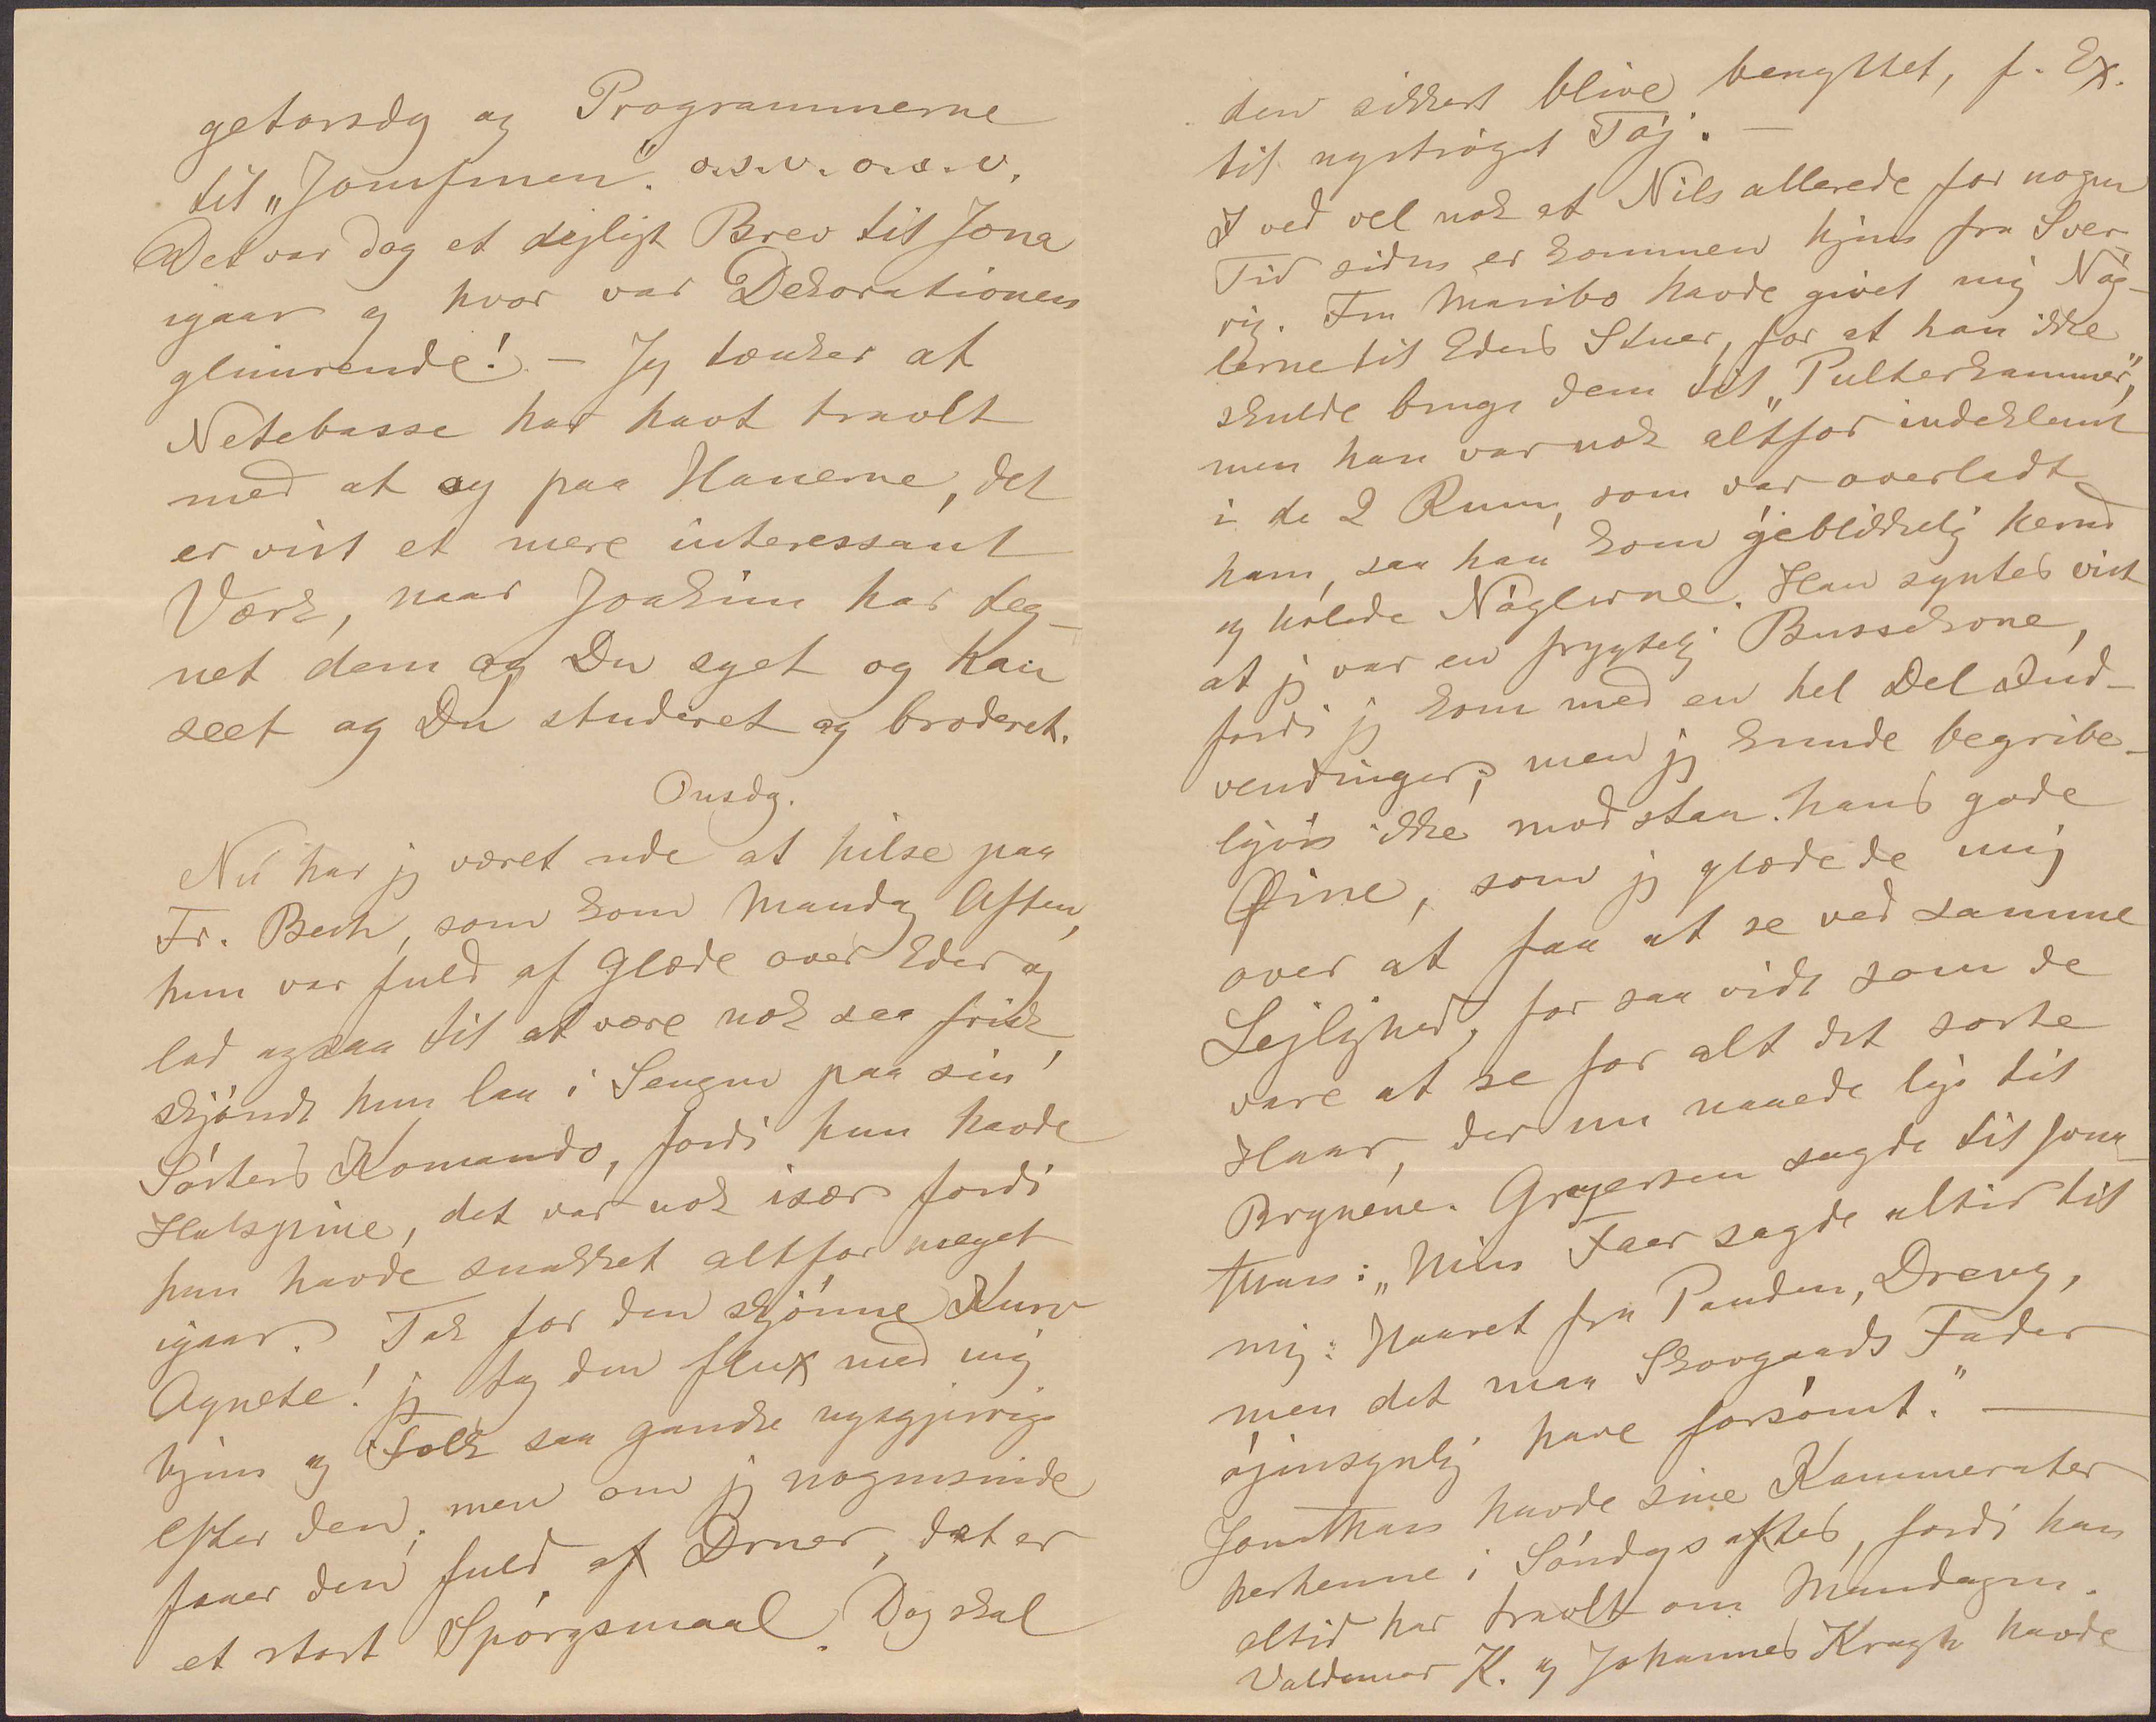 getorsdg og Programmerne
til „Jomfruen“. o.s.v. o.s.v.
Det var dog et dejligt Brev til Jona
igaar og hvor var Dekorationen
glimrende! – Jeg tænker at
Netebasse har havt travlt
med at sy paa Hanerne, det
er vist et mere interessant
Værk, naar Joakim har teg-
net dem og Du syet og han
seet og Du studeret og broderet.
Onsdg.
Nu har jeg været ude at hilse paa
Fr. Bech, som kom Mandag Aften,
hun var fuld af Glæde over Eder og
lod ogsaa til at være nok saa frisk
skjøndt hun laa i Sengen paa sin
Søsters Komando, fordi hun havde
Halspine, det var nok især fordi
hun havde snakket altfor meget
igaar. Tak for den skjønne Kurv
Agnete! jeg tog den flux med mig
hjem og Folk saa ganske nysgjerrige
efter den, men om jeg nogensinde
faaer den fuld af Druer, det er
et stort Spørgsmaal. Dog skal
den sikkert blive benyttet, f. Ex.
til nystrøget Tøj. –
I ved vel nok at Nils allerede for nogen
Tid siden er kommen hjem fra Sver-
rig. Fru Maribo havde givet mig Nøg-
lerne til Eders Stuer, for at han ikke
skulde bruge dem til „Pulterkammer“,
men han var nok altfor indeklemt
i de 2 Rum, som var overladt
ham, saa han kom øjeblikkelig herned
og hølede Nøglerne. Han syntes vist
at jeg var en frygtelig Bussekone,
fordi jeg kom med en hel Del Ind-
vendinger; men jeg kunde begribe-
ligvis ikke modstaa hans gode
Øine, som jeg glædede mig
over at faa at se ved samme
Lejlighed, for saa vidt som de
vare at se for alt det sorte
Haar, der nu naaede lige til
Brynene. Gregersen sagde til Jona-
than: „Min Faer sagde altid til
mig: Haaret fra Panden, Dreng,
men det maa Skovgaards Fader
øjensynlig have forsømt.“ –
Jonathan havde sine Kammerater
herhenne i Søndags aftes, fordi han
altid har travlt om Mandagen.
Valdemar K. og Johannes Kragh havde